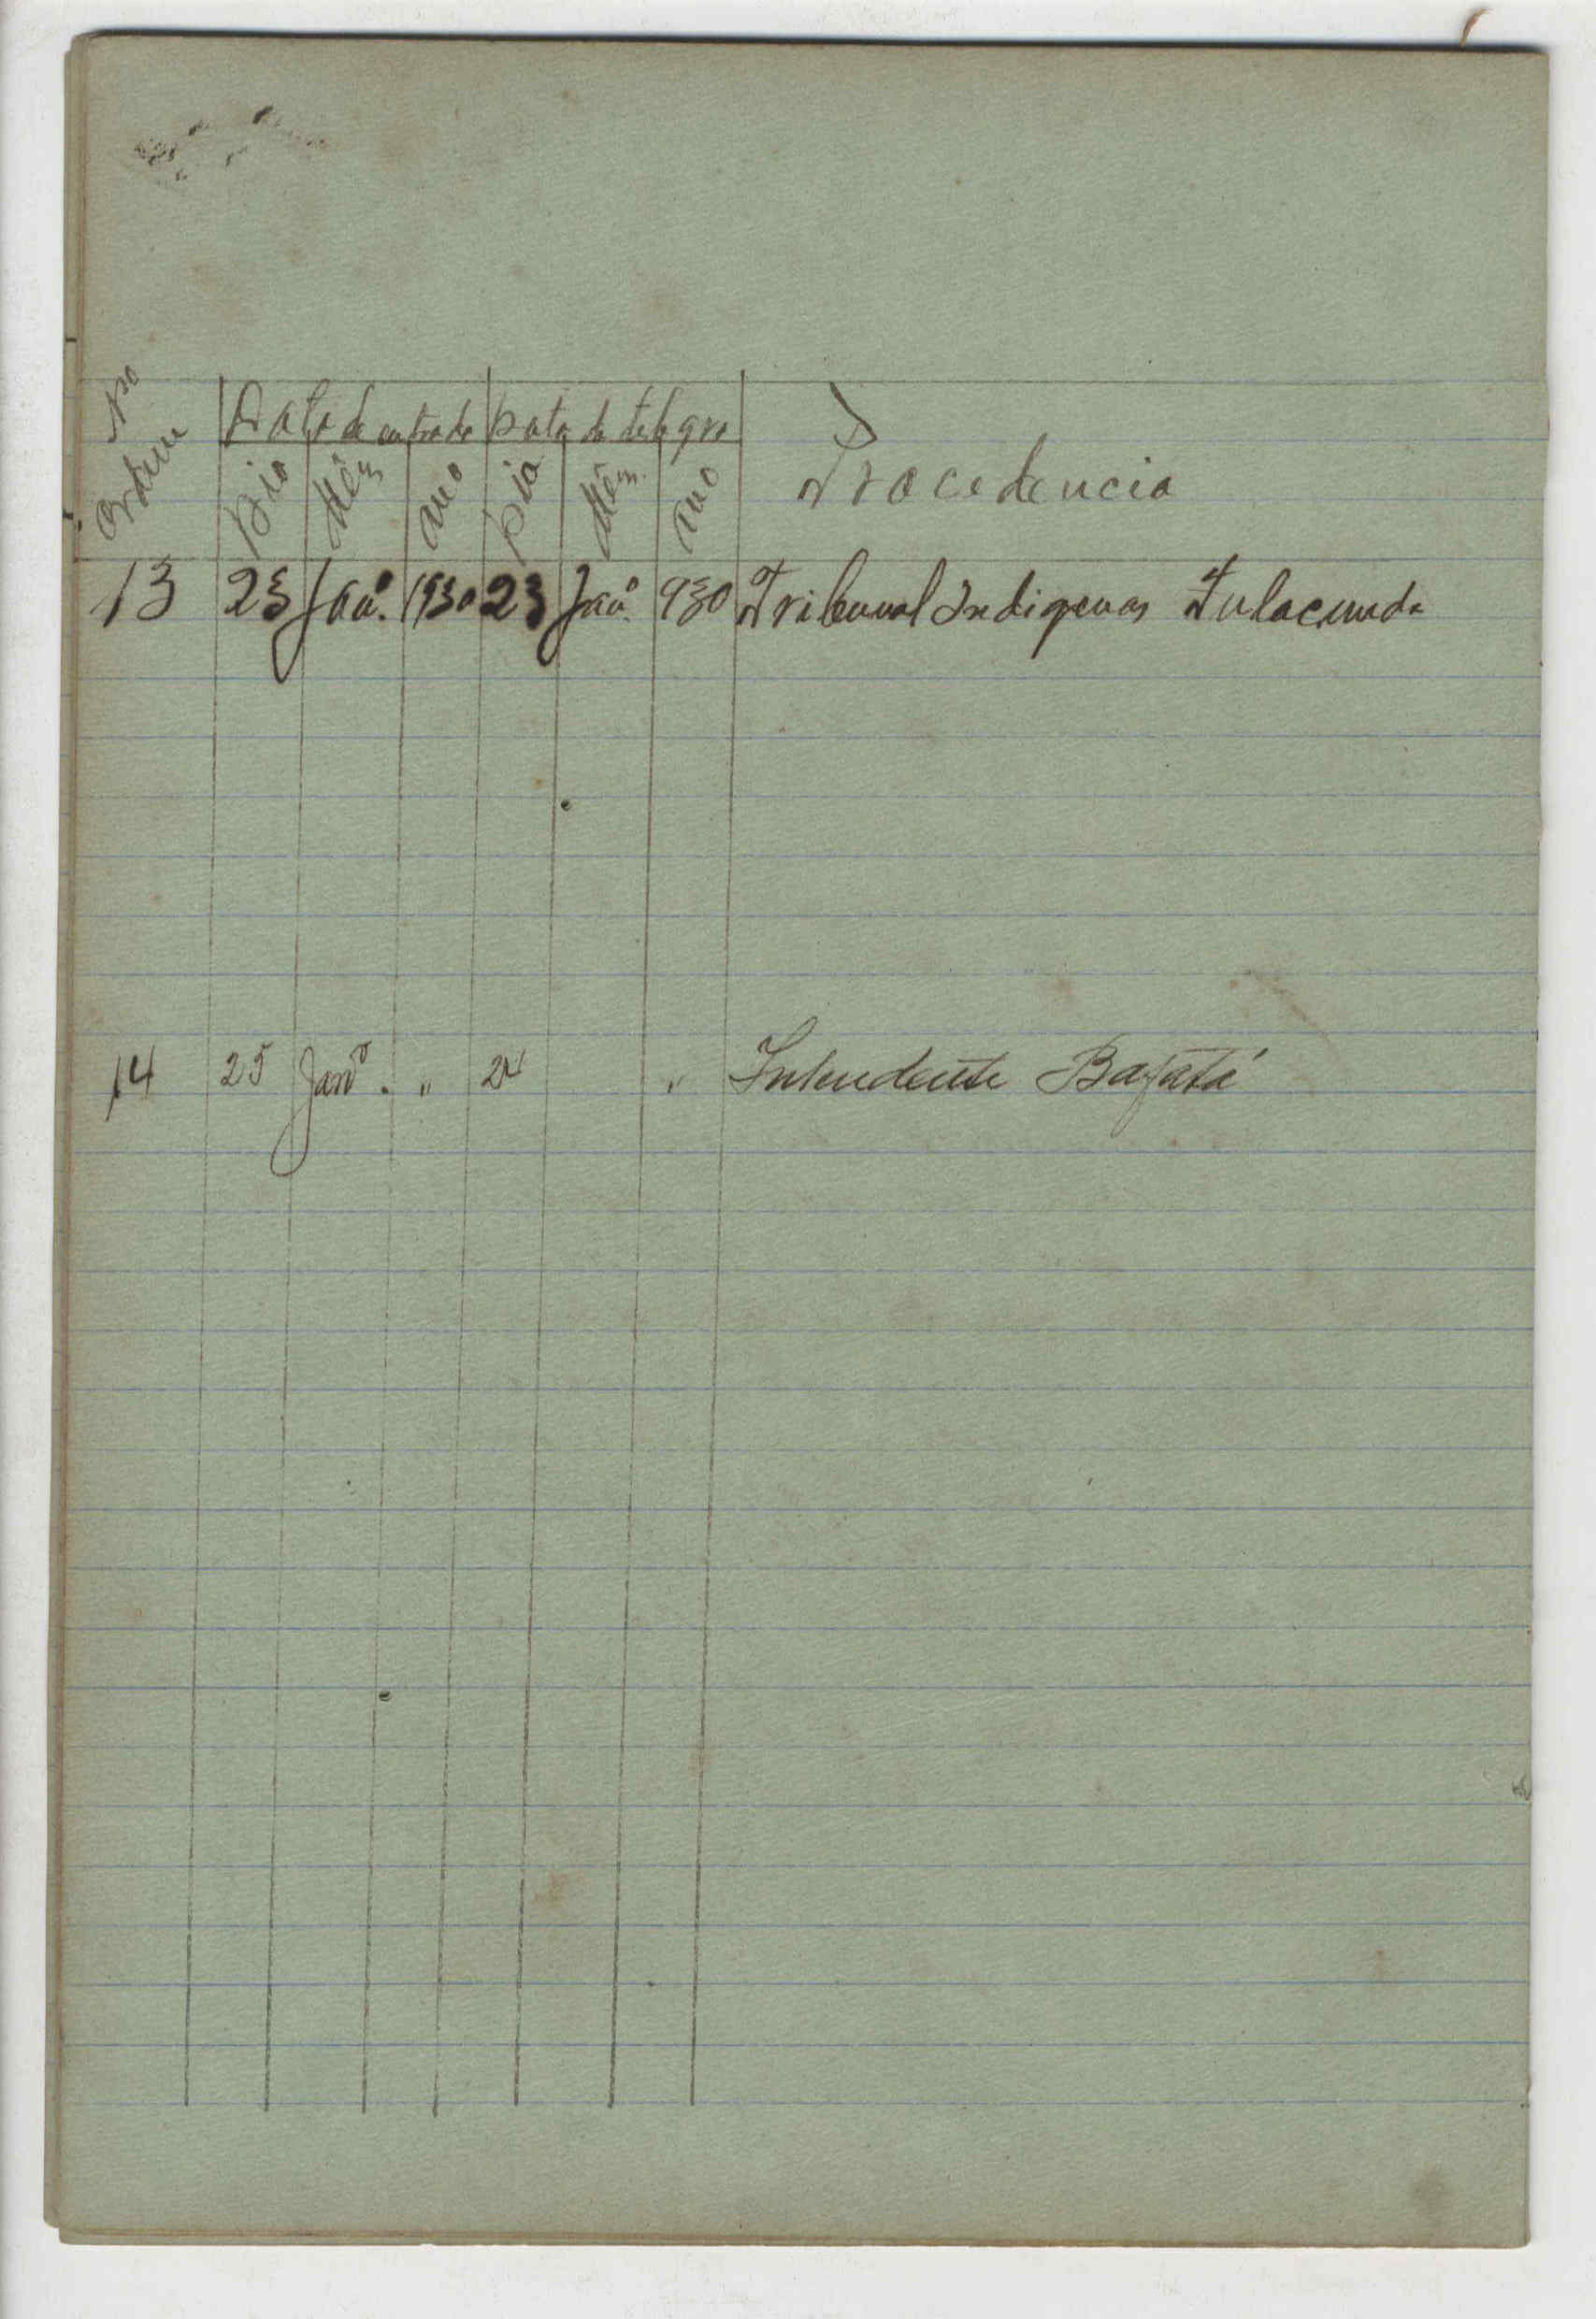 Nº Ordem
Data de entrada Data do telegra
Dia Mês Ano Dia Mês Ano Procedencia
13 23 Janº. 1930 23 Janº. 930 Tribunal Indigenas Fulacunda
14 25 Janº. " 24 " Intendente Bafatá